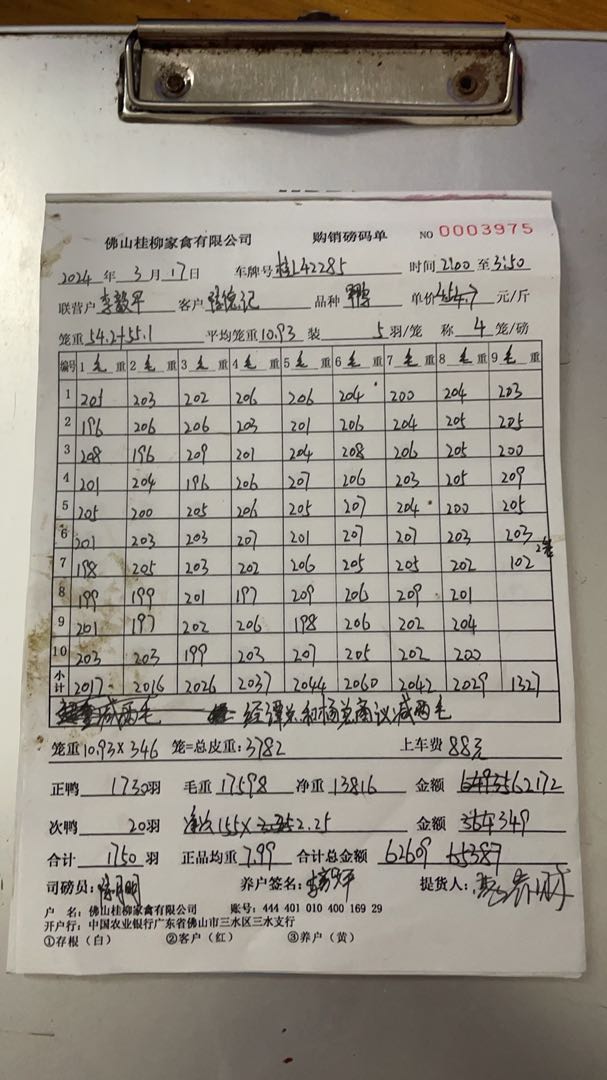 佛山桂柳家禽有限公司 购销磅码单 NO 0003975
2024 年 3 月 17 日 车牌号 桂L42285 时间 2:00 至 3:50
联营户 李毅平 客户 记 品种 单价 4.7 元/斤
笼重 54.2+55.1 平均笼重 10.93 装 5 羽/笼 称 4 笼/磅
编号 1 毛 重 2 毛 重 3 毛 重 4 毛 重 5 毛 重 6 毛 重 7 毛 重 8 毛 重 9 毛 重
1 205 203 202 206 206 204 200 204 203
2 196 206 206 203 201 206 204 205 205
3 208 196 209 201 204 208 206 205 200
4 201 204 196 206 207 206 203 205 209
5 205 200 205 206 205 207 204 200 205
6 201 203 203 207 201 207 207 203 203
7 198 205 203 202 206 205 205 202 102 2笼
8 199 199 201 197 209 206 209 201
9 201 197 202 206 198 206 202 204
10 203 203 199 203 207 205 202 200
小计 2017 2016 2026 2037 2044 2060 2042 2029 1327
减两毛 经谭总和杨总商议减两毛
笼重 10.93×346 笼=总皮重: 3782 上车费 88元
正鸭 1730 羽 毛重 17598 净重 13816 金额 62172
次鸭 20 羽 净次 155× 2.25 金额 349
合计 1750 羽 正品均重 7.99 合计总金额 62609 55387
司磅员: 养户签名: 李毅平 提货人:
户 名: 佛山桂柳家禽有限公司 账号: 444 401 010 400 169 29
开户行: 中国农业银行广东省佛山市三水区三水支行
①存根（白） ②客户（红） ③养户（黄）